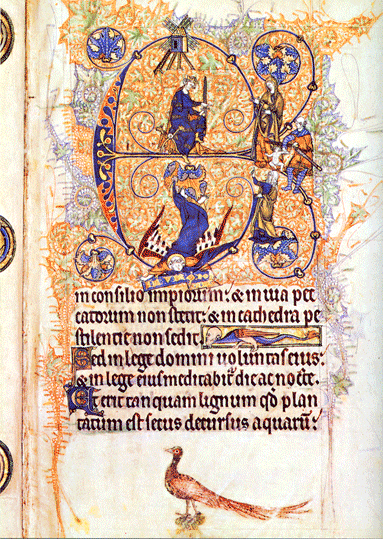 E
in consilio impiorum: & in uia pec
catorum non stetit: & in cathedra pe
stilentie non sedit.
Sed in lege domini uoluntas eius:
& in lege eius meditabit᷑ die ac nocte.
Et erit tanquam lignum qđ plan
tatum est secus decursus aquarū: